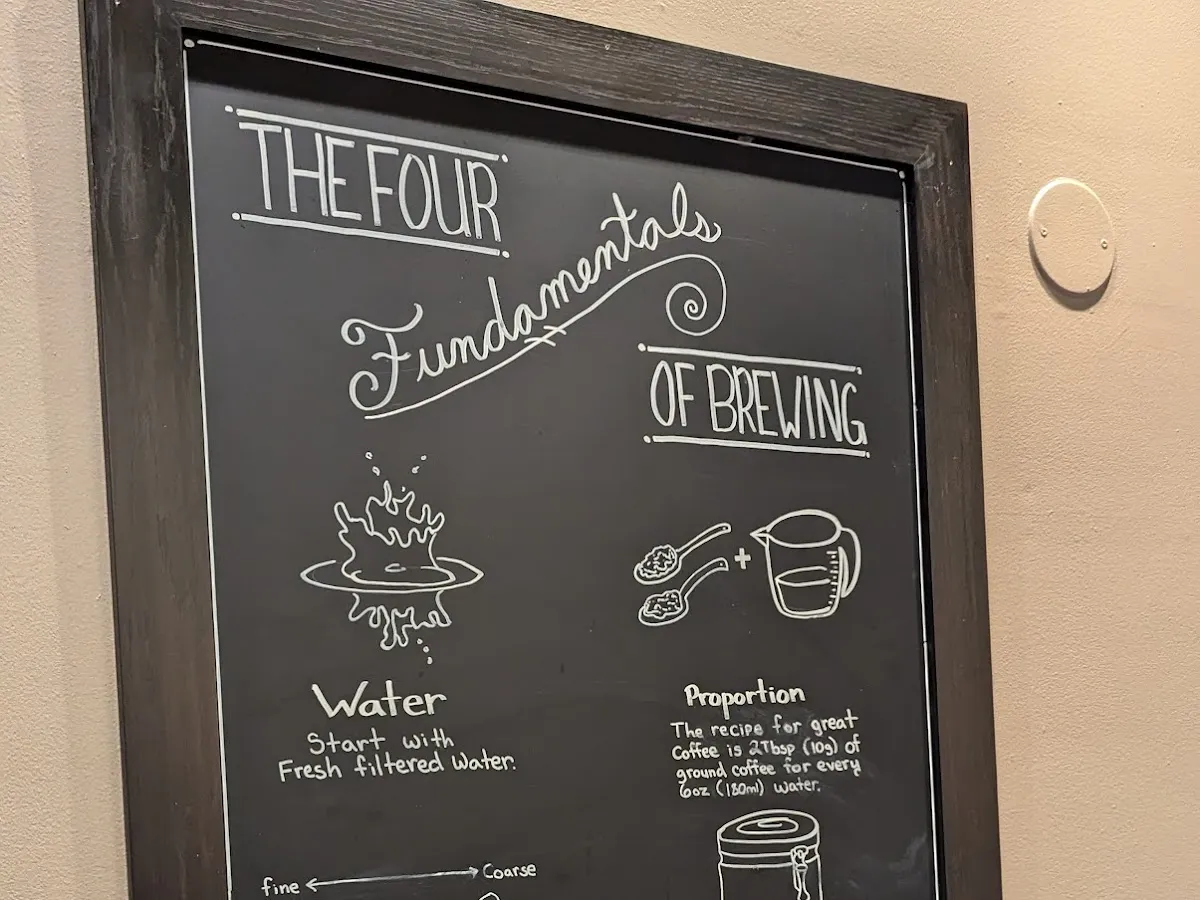 THE FOUR
Fundamentals
OF BREWING
Water
Start with
Fresh filtered Water.
Proportion
The recipe for great
Coffee is 2Tbsp (10g) of
ground coffee for every
6oz (180ml) Water.
fine
Coarse